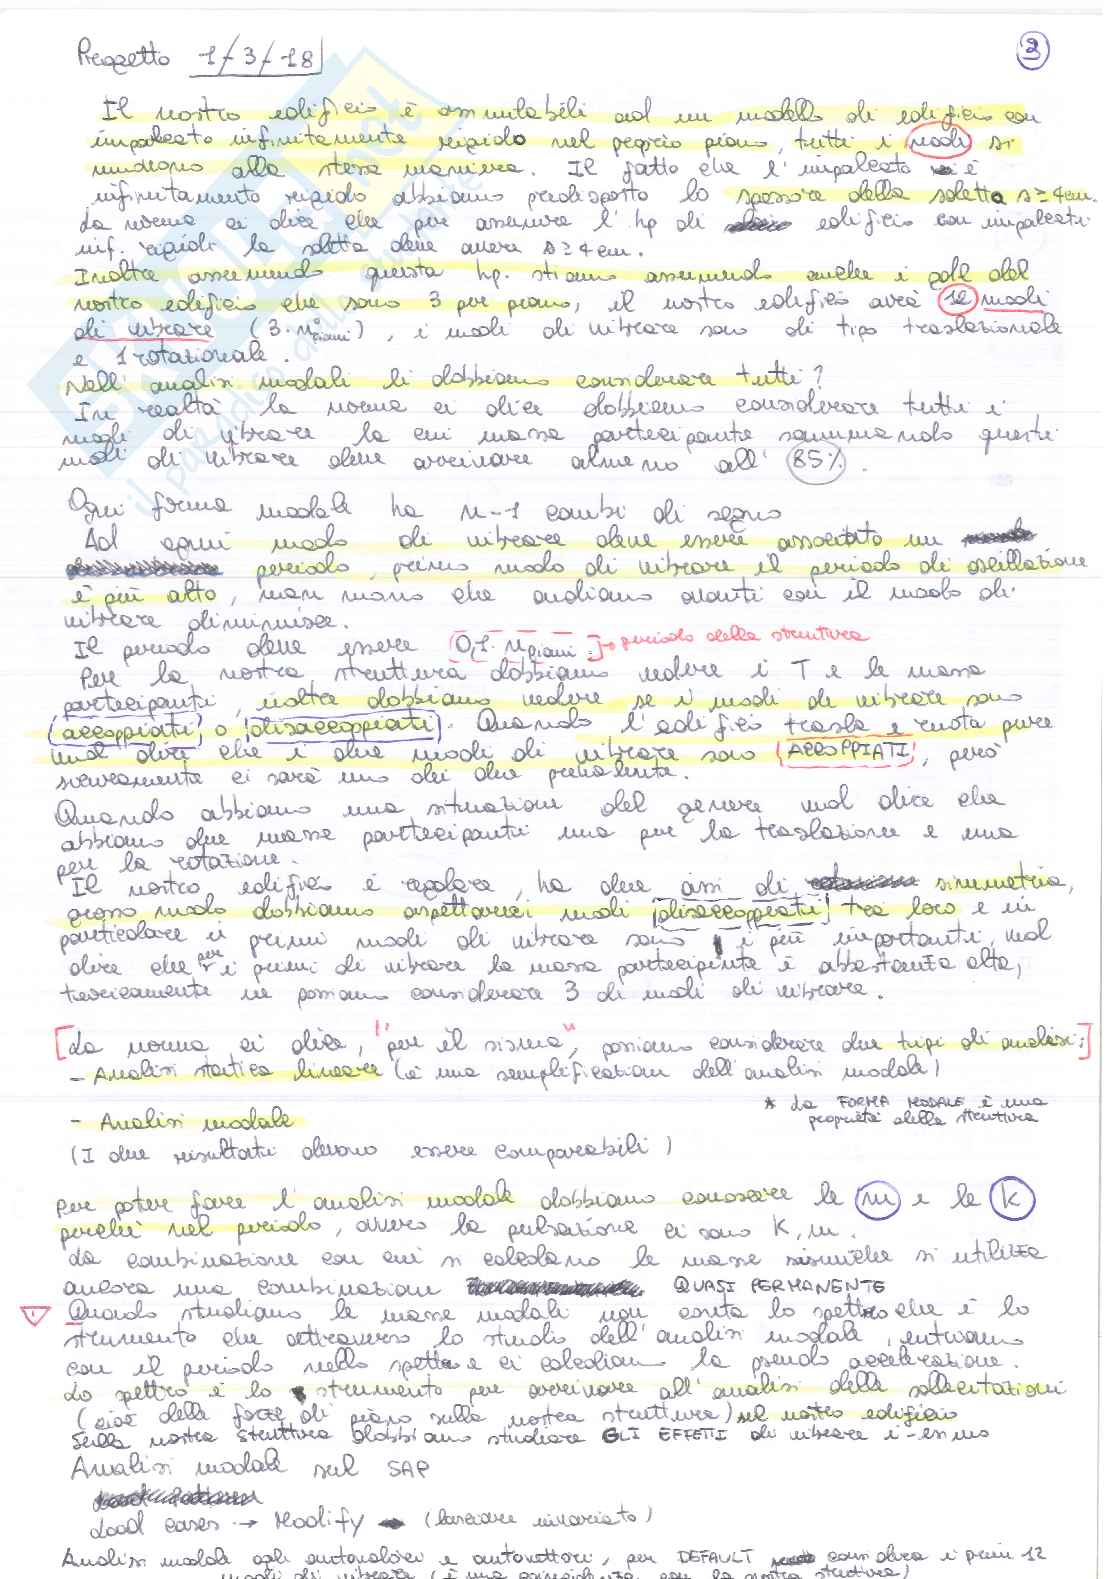 Progetto 1/3/18
2
Il nostro edificio è assimilabili ad un modello di edificio con
impalcato infinitamente rigido nel proprio piano, tutti i nodi si
muovono alla stessa maniera. Il fatto che l'impalcato è
infinitamente rigido abbiamo predisposto lo spessore della soletta s ≥ 4cm.
La norma ci dice che per assumere l'hp di edificio con impalcati
inf. rigidi la soletta deve avere s ≥ 4cm.
Inoltre assumendo questa hp. stiamo assumendo anche i gdl del
nostro edificio che sono 3 per piano, il nostro edificio avrà 12 modi
di vibrare (3 · n°piani), i modi di vibrare sono di tipo traslazionale
e 1 rotazionale.
Nell'analisi modali li dobbiamo considerare tutti?
In realtà la norma ci dice dobbiamo considerare tutti i
modi di vibrare la cui massa partecipante sommando questi
modi di vibrare deve arrivare almeno all' 85%.
Ogni forma modale ha n-1 cambi di segno
Ad ogni modo di vibrare deve essere associato un
periodo, primo modo di vibrare il periodo di oscillazione
è più alto, man mano che andiamo avanti con il modo di
vibrare diminuisce.
Il periodo deve essere 0,1 · npiani → periodo della struttura
Per la nostra struttura dobbiamo vedere i T e le masse
partecipanti, inoltre dobbiamo vedere se i modi di vibrare sono
(accoppiati) o disaccoppiati. Quando l'edificio trasla e ruota pure
vuol dire che i due modi di vibrare sono (ACCOPPIATI), però
sicuramente ci sarà uno dei due prevalente.
Quando abbiamo una situazione del genere vuol dire che
abbiamo due masse partecipanti una per la traslazione e una
per la rotazione.
Il nostro edificio è regolare, ha due assi di simmetria,
grosso modo dobbiamo aspettarci modi disaccoppiati tra loro e in
particolare i primi modi di vibrare sono i più importanti, vuol
dire che per i primi di vibrare la massa partecipante è abbastanza alta,
teoricamente ne possiamo considerare 3 di modi di vibrare.
[La norma ci dice, "per il sisma", possiamo considerare due tipi di analisi:]
- Analisi statica lineare (è una semplificazione dell'analisi modale)
* La FORMA MODALE è una
proprietà della struttura
- Analisi modale
(I due risultati devono essere comparabili)
Per poter fare l'analisi modale dobbiamo conoscere le m e le k
perché nel periodo, ovvero la pulsazione ci sono K, m.
La combinazione con cui si calcolano le masse sismiche si utilizza
ancora una combinazione QUASI PERMANENTE
! Quando studiamo le masse modali non conta lo spettro che è lo
strumento che attraverso lo studio dell'analisi modale, entriamo
con il periodo nello spettro e ci calcoliamo la pseudo accelerazione.
Lo spettro è lo strumento per arrivare all'analisi delle sollecitazioni
(cioè delle forze di piano sulla nostra struttura) sul nostro edificio
Sulla nostra struttura dobbiamo studiare GLI EFFETTI di vibrare i-esimo
Analisi modale sul SAP
Load cases → Modify → (lasciare invariato)
Analisi modale agli autovalori e autovettori, per DEFAULT considera i primi 12
modi di vibrare (è una coincidenza con la nostra struttura)